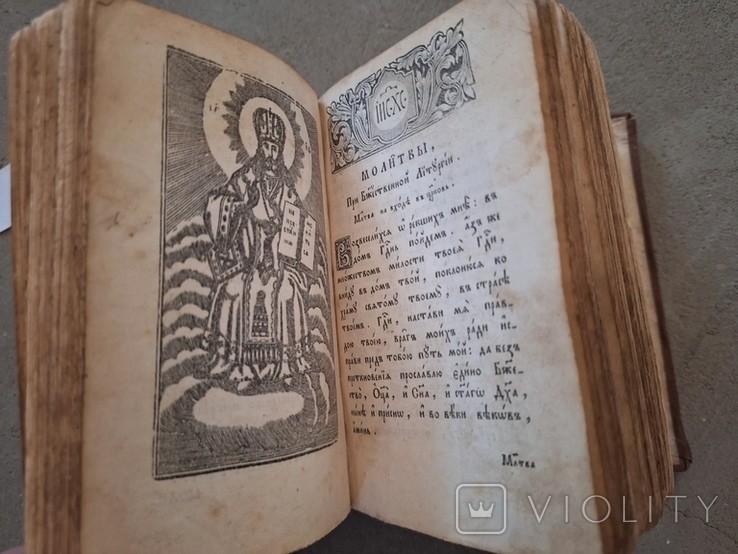 І҃ИС ХС
МОЛИ̑ТВЫ,
При Бж҃ественной Лїтꙋргїи.
Мл҃тва на входѣ въ цр҃ковь.
Возвеселихсѧ ѡ рекшихъ мнѣ: въ
домъ Гд҃нь по́йдемъ. А҆́зъ же
множествомъ милости твоеѧ̀ Гд҃и,
вни́дꙋ въ домъ тво́й, поклонюсѧ ко
хра́мꙋ свѧто́мꙋ твоемꙋ̀, въ стра́сѣ
твое́мъ. Гд҃и, наста́ви мѧ̀ пра́в-
дою твое́ю, вра̑гъ мои́хъ ра́ди и҆с-
пра́ви пред̾ тобо́ю пꙋ́ть мо́й: да без̾
преткнове́нїѧ просла́влю є҆ди́но Бж҃е-
ство̀, Ѻ҆ц҃а̀, и҆ Сн҃а, и҆ ст҃а́гѡ Дх҃а,
ны́нѣ и҆ при́снѡ, и҆ во вѣ́ки вѣкѡ́въ,
а҆ми́нь.
Мл҃тва
VIOLITY